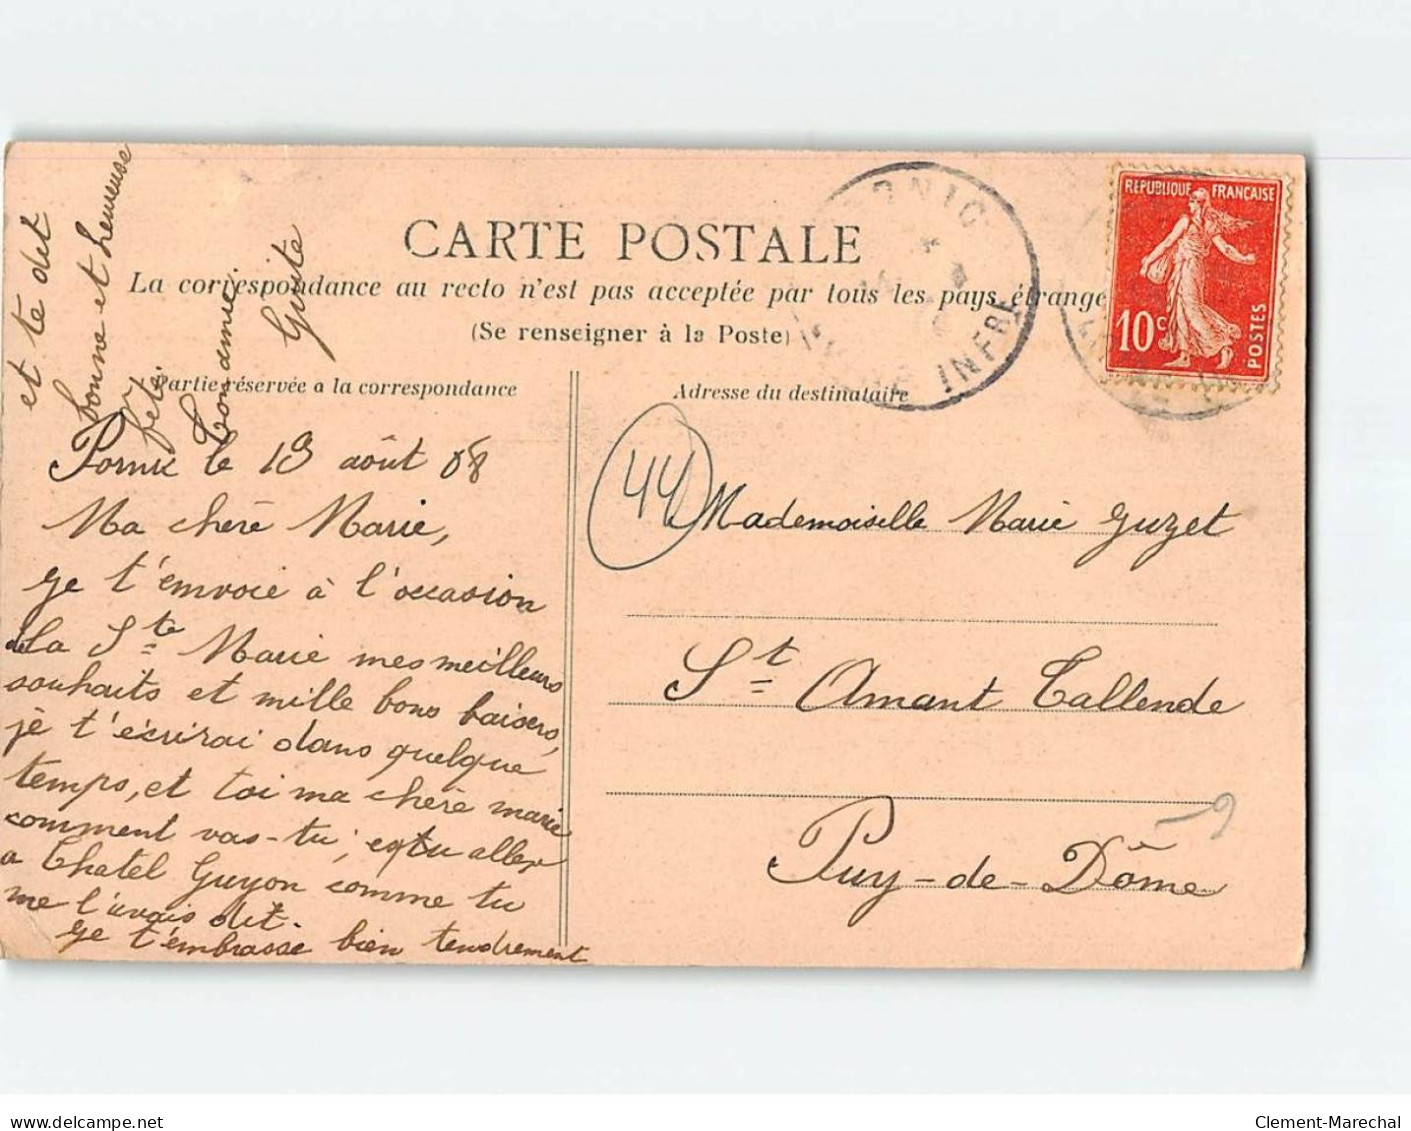 CARTE POSTALE
La correspondance au recto n'est pas acceptée par tous les pays étrange
(Se renseigner à la Poste)
Partie réservée a la correspondance
Adresse du destinataire
Pornic le 13 août 08
Ma chère Marie,
je t'envoie à l'occasion
de la Ste Marie mes meilleurs
souhaits et mille bons baisers,
je t'écrirai dans quelque
temps, et toi ma chère marie
comment vas-tu, es-tu allée
a Chatel Guyon comme tu
me l'avais dit.
je t'embrasse bien tendrement
et te dit
bonne et heureuse
fête
Ton amie
Guite
44
Mademoiselle Marie Guzet
St Amant Tallende
Puy-de-Dôme
9
RÉPUBLIQUE FRANÇAISE
10c
POSTES
PORNIC
INFRE
delcampe.net
Clement-Marechal